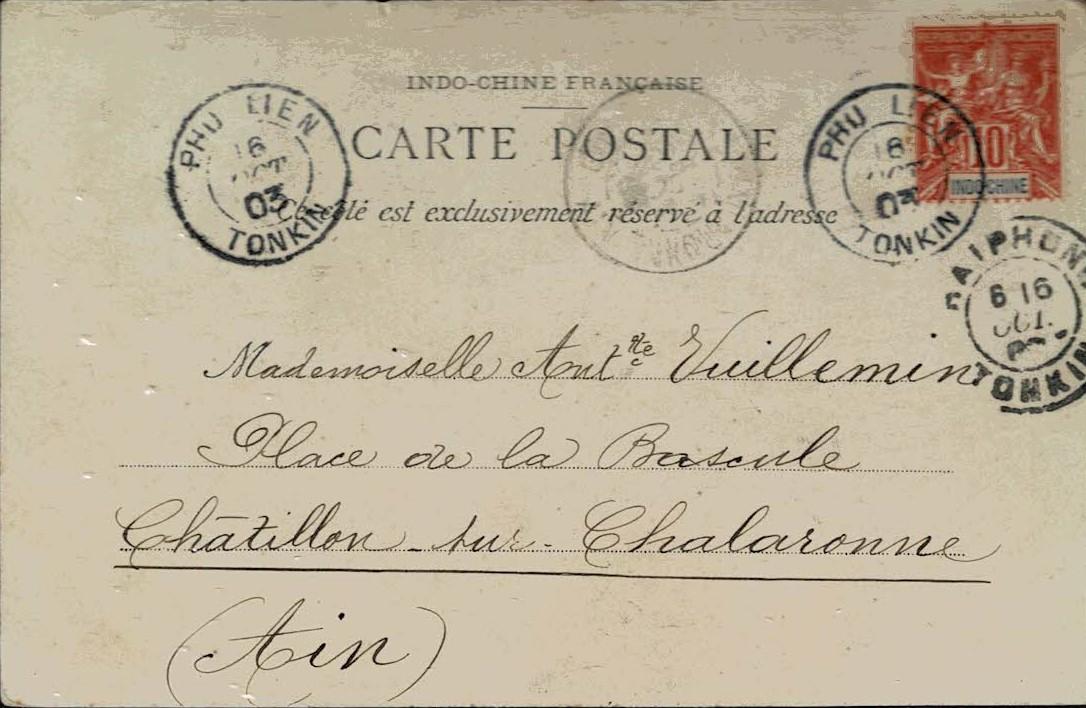 INDO-CHINE FRANÇAISE
CARTE POSTALE
Ce côté est exclusivement réservé à l'adresse
PHU LIEN
16
OCT
03
TONKIN
PHU LIEN
16
OCT
03
TONKIN
10
INDO-CHINE
HAIPHONG
6 16
OCT.
TONKIN
Mademoiselle Anttte Vuillemin
Place de la Bascule
Châtillon-sur-Chalaronne
(Ain)